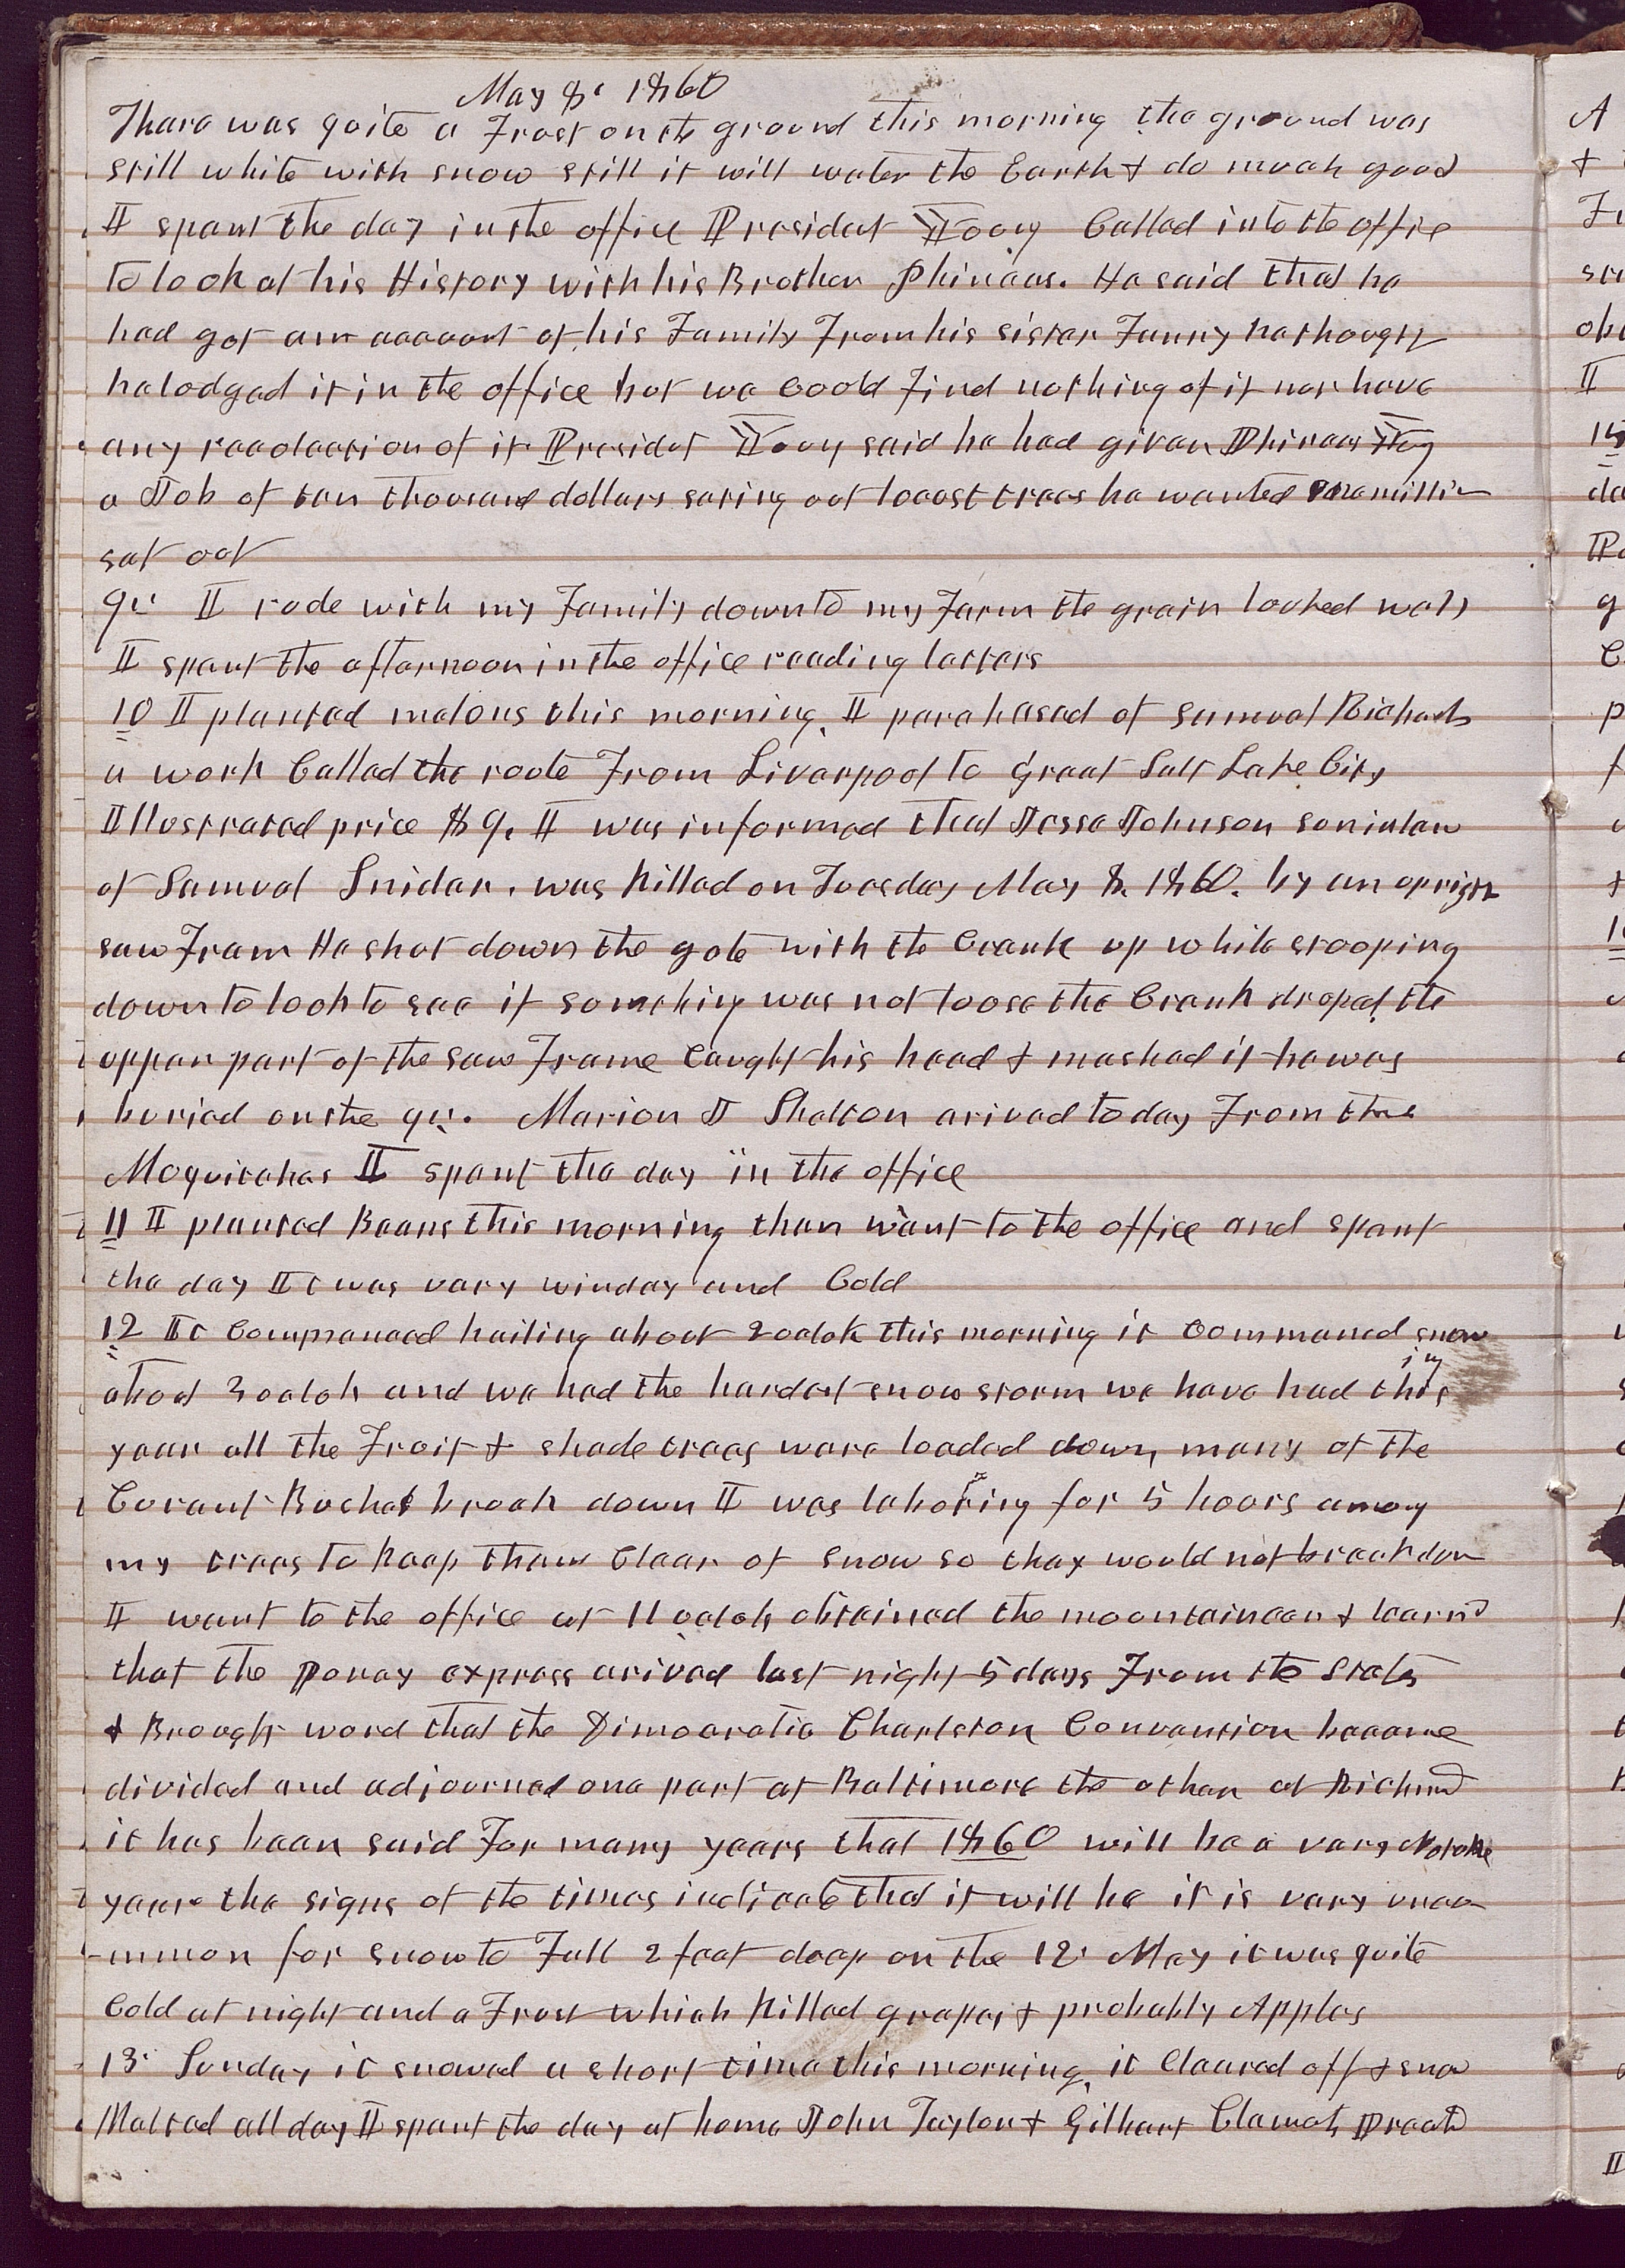 May 8th 1860
There was quite a Frost on the ground this morning the ground was
still white with snow still it will water the Earth & do much good
I spent the day in the office President Young Called into the office
to look at his History with his Brother Phineas. He said that he
had got an account of his Family From his sister Fanny he thought
he lodged it in the office but we Could find nothing of it nor have
any recolection of it President Young said he had given Phineas Young
a Job of ten thousand dollars seting out locost trees he wanted one million
set out
9th I rode with my Family down to my Farm the grain looked well
I spent the afternoon in the office reading letters
10 I planted melons this morning. I purchased of Samuel Richards
a work Called the route From Liverpool to Great Salt Lake City
Illustrated price $9. I was informed that Jesse Johnson son in law
of Samuel Snider. was killed on Tuesday May 8. 1860. by an upright
saw Fram He shut down the gate with the Crank up while stooping
down to look to see if something was not loose the Crank droped the
upper part of the saw Frame Caught his head & mashed it he was
buried on the 9th. Marion J Shelton arived to day From the
Moquitches I spent the day in the office
11 I planted Beans this morning then went to the office and spent
the day It was very winday and Cold
12 It Commenced hailing about 2 oclok this morning it Commenced snowing
about 3 oclok and we had the hardest snow storm we have had this
year all the Fruit & shade trees were loaded down many of the
Curant Bushes broak down I was laboring for 5 hours among
my trees to keep them Clear of snow so they would not break down
I went to the office at 11 oclok obtained the mountaineer & learnd
that the Poney express arived last night 5 days From the States
& Brought word that the Dimocratic Charleston Convention became
divided and adjourned one part at Baltimore the other at Richmd
it has been said For many years that 1860 will be a very Notable
year the signs of the times indicate that it will be it is very unco-
-mmon for snow to Fall 2 feet deep on the 12th May it was quite
Cold at night and a Frost which killed grapes & probably Apples
13th Sunday it snowed a short time this morning. it Cleared off & snow
Melted all day I spent the day at home John Taylor & Gilbert Clements Preachd